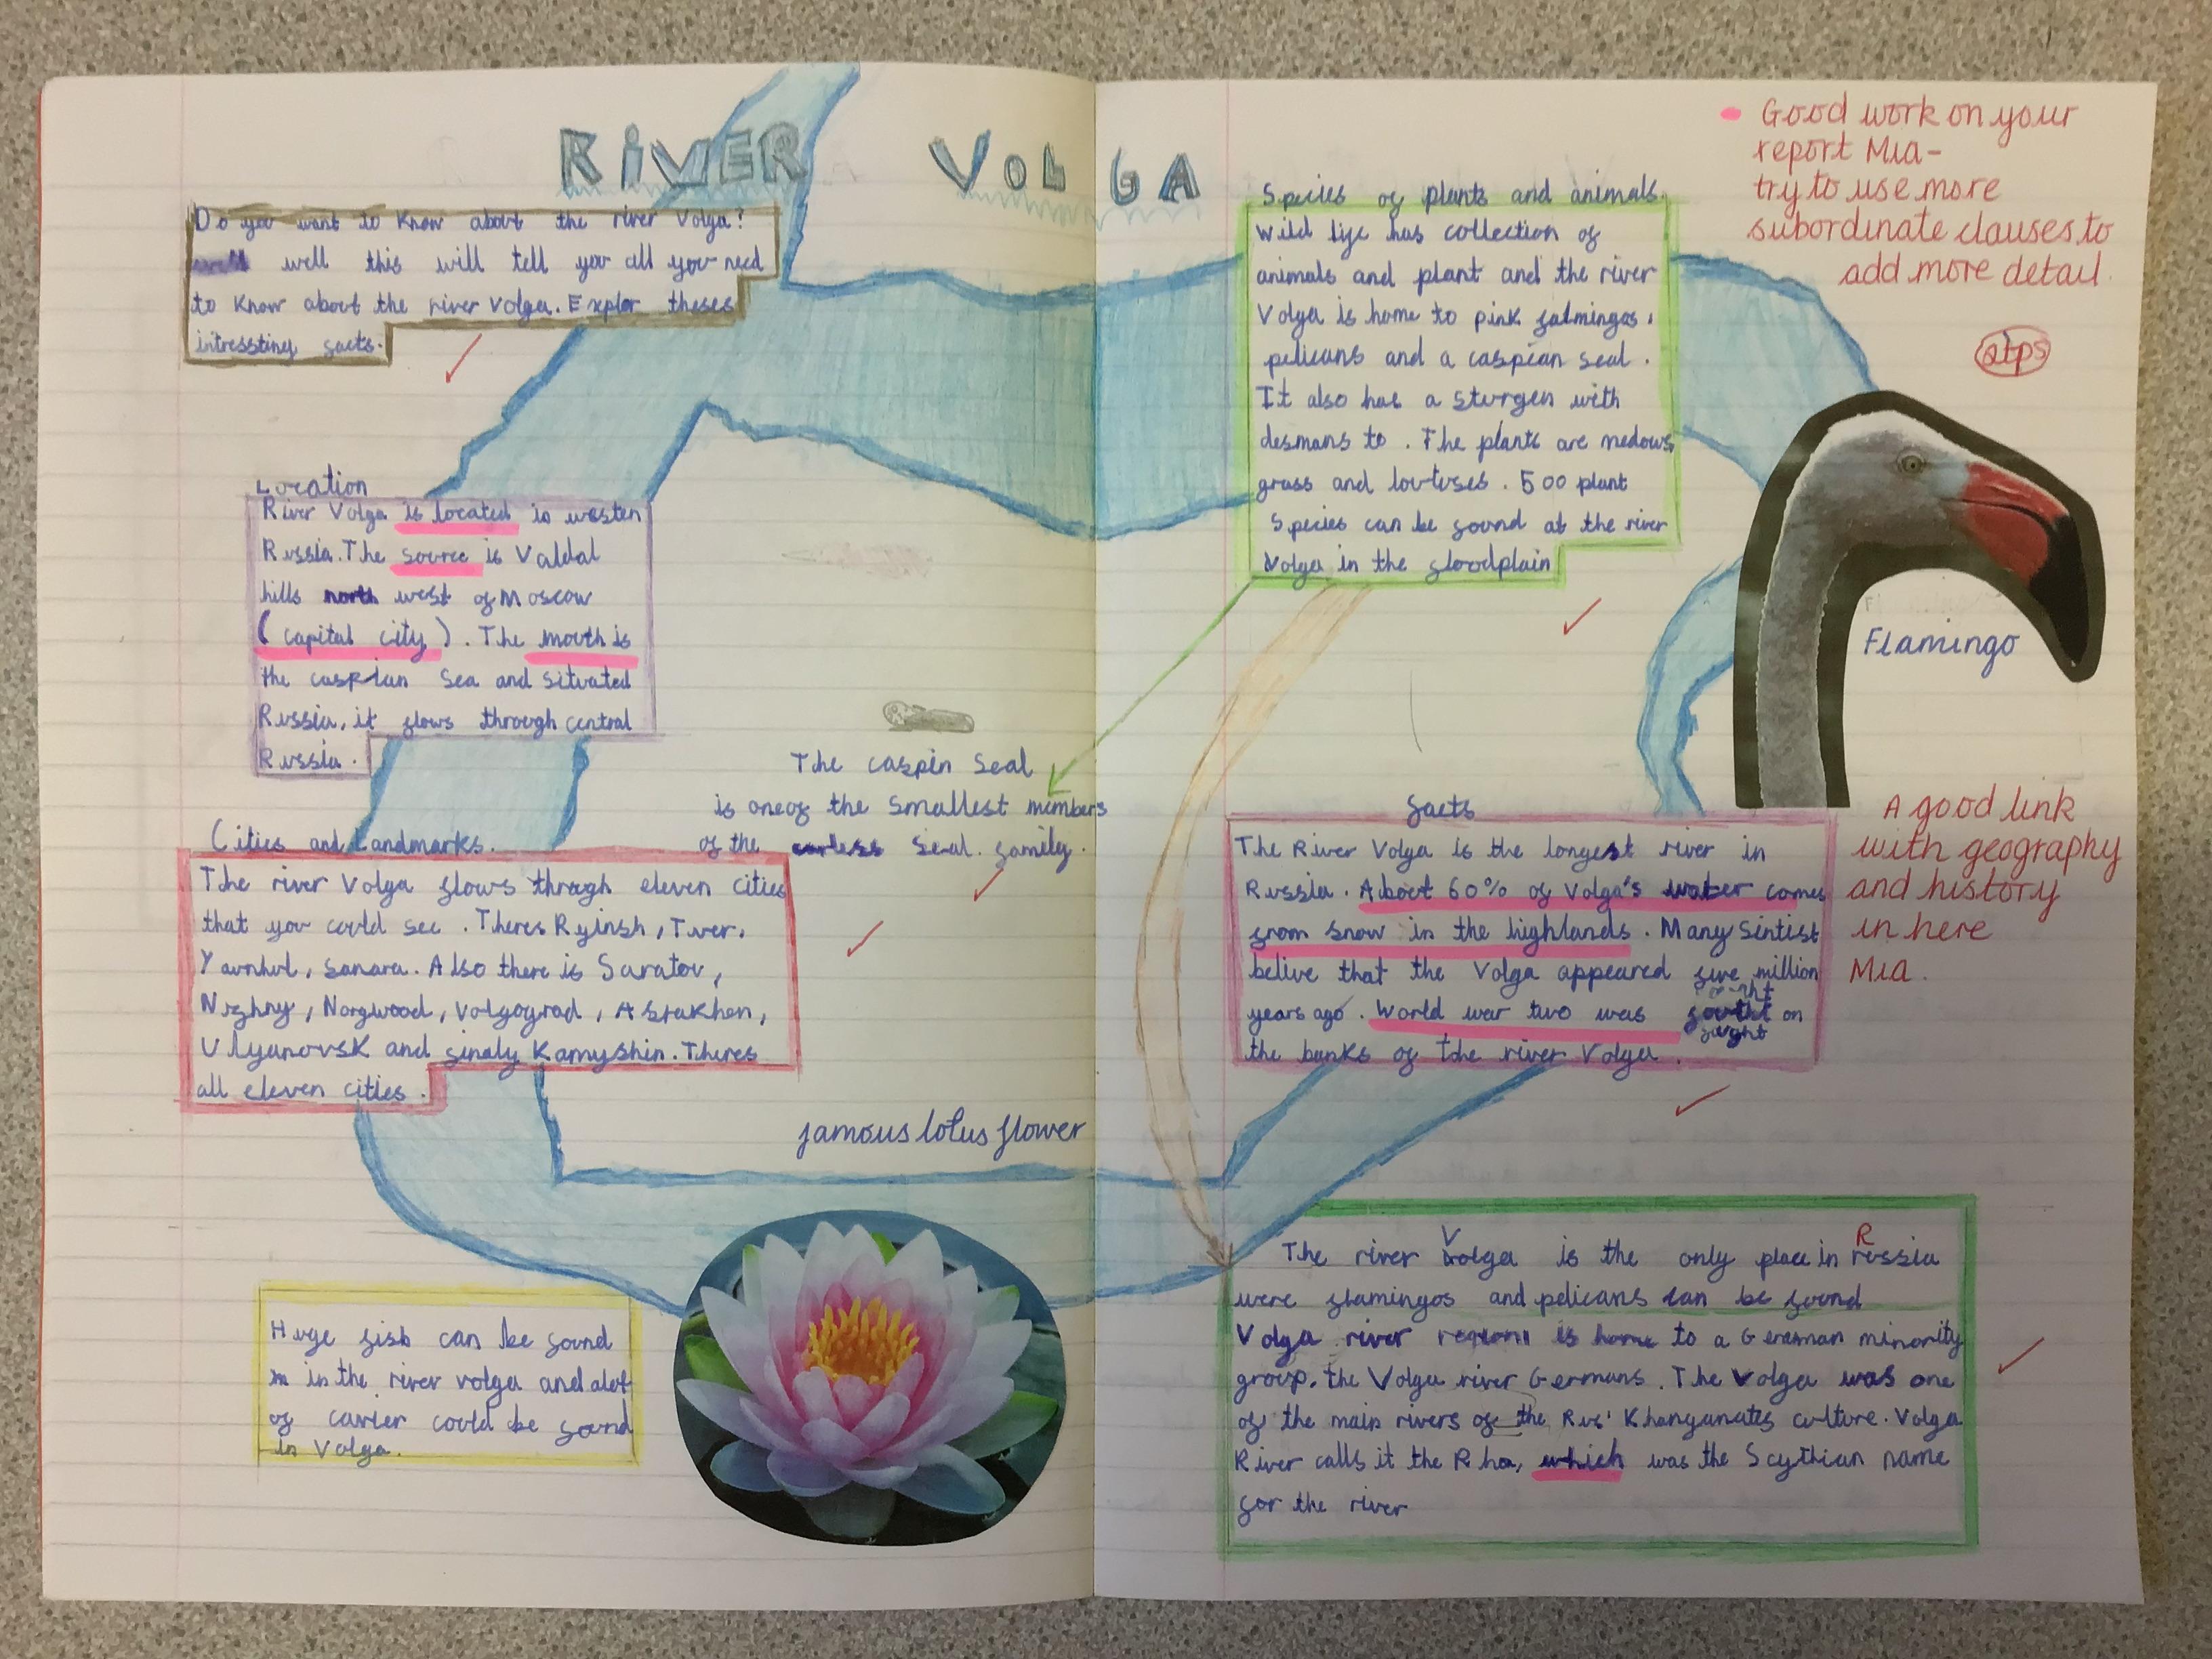 RiVER VOLGA
Do you want to know about the river Volga?
well this will tell you all you need
to know about the river Volga. Explor theses
intressting facts.
Location
River Volga is located in westen
Russia. The source is Valdal
hills north west of Moscow
(capital city). The mouth is
the caspian Sea and situated
Russia, it flows through central
Russia.
The caspin seal
is one of the smallest members
of the seal family.
Cities and Landmarks.
The river Volga flows through eleven cities
that you could see. Theres Ryinsh, Tver,
Yavnhvl, Sanara. Also there is Saratov,
Nizhny, Norgwood, Volgograd, Astrakhen,
Ulyanovsk and finaly Kamyshin. Theres
all eleven cities.
famous lotus flower
Huge fish can be found
in the river volga and alot
of cavier could be found
in Volga.
Species of plants and animals.
Wild life has collection of
animals and plant and the river
Volga is home to pink falmingos,
pelicans and a caspian seal.
It also has a sturgen with
desmans to. The plants are medows,
grass and lovtuses. 500 plant
Species can be found at the river
Volga in the floodplain
• Good work on your
report Mia-
try to use more
subordinate clauses to
add more detail.
Flamingo
facts
The River Volga is the longest river in
Russia. About 60% of Volga's water comes
from snow in the highlands. Many Sintist
belive that the Volga appeared five million
years ago. World war two was fought on
the banks of the river Volga.
A good link
with geography
and history
in here
Mia.
The river Volga is the only place in Russia
were flamingos and pelicans can be found
Volga river regions is home to a Geresman minority
group, the Volga river Germans. The Volga was one
of the main rivers of the Rus' Khanganates culture. Volga
River calls it the Rha, which was the Scythian name
for the river